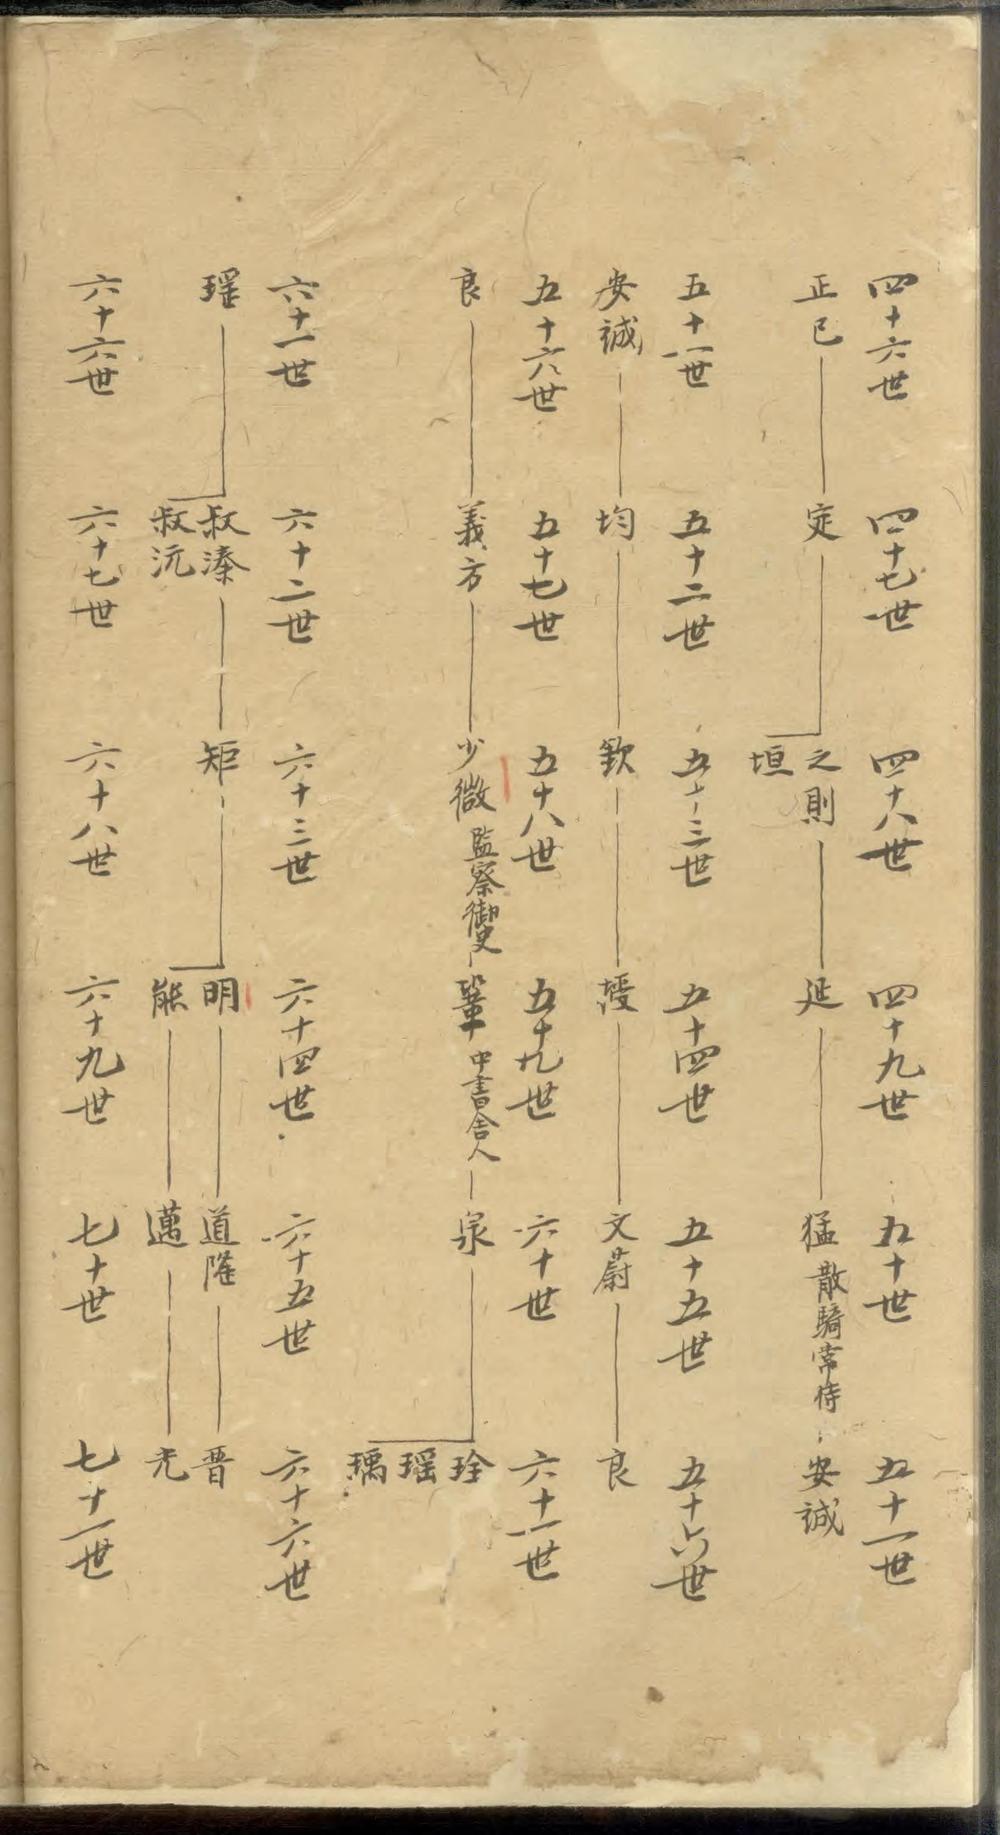 四十六世 四十七世 四十八世 四十九世 五十世 五十一世
正已 定 之則 延 猛 散騎常侍 安誠
垣
五十一世 五十二世 五十三世 五十四世 五十五世 五十六世
安誠 均 欽 授 文蔚 良
五十六世 五十七世 五十八世 五十九世 六十世 六十一世
良 義方 少微 監察御史 鞏 中書舍人 泉 玲
瑶
瑀
六十一世 六十二世 六十三世 六十四世 六十五世 六十六世
瑶 叔溱 矩 明 道隆 晋
叔沅 能 邁 光
六十六世 六十七世 六十八世 六十九世 七十世 七十一世